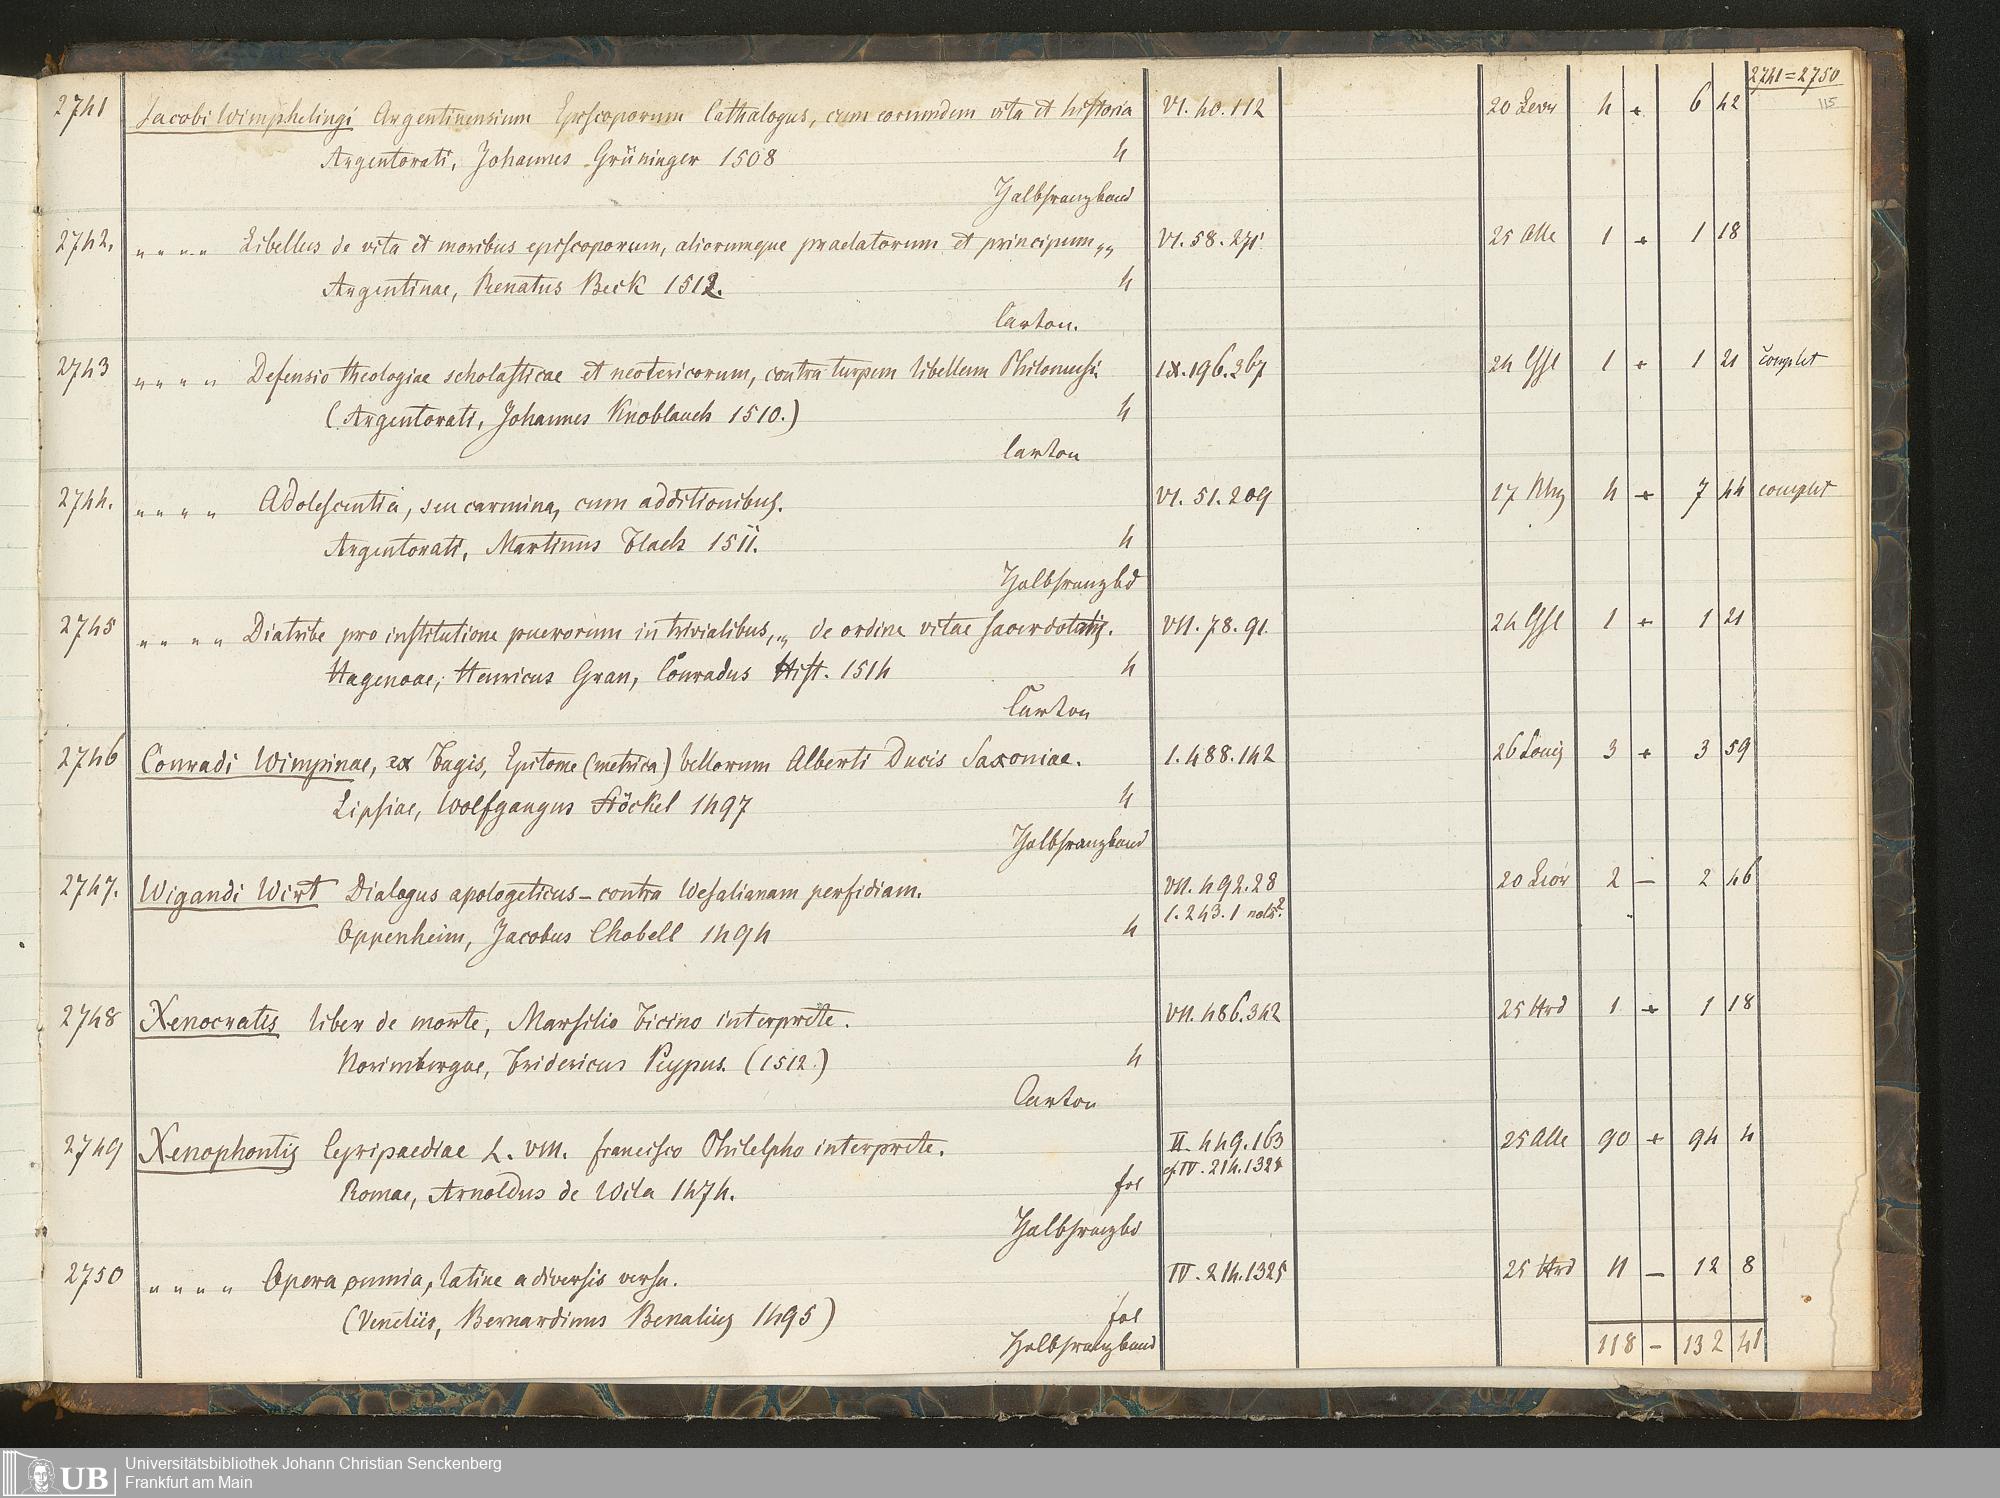 2741=2750
115
2741 Jacobi Wimphelingi Argentinensium Episcoporum Cathalogus, cum eorumdem vita et historia VI. 40. 112 4 + 6 42
Argentorati, Johannes Grüninger 1508 4
Halbfranzband
2742. " " " " Libellus de vita et moribus episcoporum, aliorumque praelatorum et principum „„ VI. 58. 275 25 Alle 1 + 1 18
Argentinae, Renatus Beck 1512. 4
Carton.
2743 " " " " Defensio theologiae scholasticae et neotericorum, contra turpem libellum Philomusi. IX. 196. 367 1 + 1 21 complet
(Argentorati, Johannes Knoblauch 1510.) 4
Carton
2744. " " " " Adolescentia, seu carmina, cum additionibus. VI. 51. 209 4 + 7 44 complet
Argentorati, Martinus Flach 1511. 4
Halbfranzbd
2745 " " " " Diatribe pro institutione puerorum in trivialibus, „„ de ordine vitae sacerdotalis. VII. 78. 91. 1 + 1 21
Hagenoae, Henricus Gran, Conradus Hist. 1514 4
Carton
2746 Conradi Wimpinae, ex Fagis, Epitome (metrica) bellorum Alberti Ducis Saxoniae. I. 488. 142 3 + 3 59
Lipsiae, Wolfgangus Stöckel 1497 4
Halbfranzband
2747. Wigandi Wirt Dialogus apologeticus – contra Wesalianam perfidiam. VII. 492. 28 2 – 2 46
I. 243. 1 not. 2
Oppenheim, Jacobus Chobell 1494 4
2748 Xenocratis liber de morte, Marsilio Ficino interprete. VII. 486. 342 25 Hrd 1 + 1 18
Norimbergae, Fridericus Peypus. (1512.) 4
Carton
2749 Xenophontis Cyripaediae L. VIII. Francisco Philelpho interprete. II. 449. 163 25 Alle 90 + 94 4
cf IV. 214. 1324
Romae, Arnoldus de Vila 1474. fol
Halbfranzbd
2750 " " " " Opera omnia, latine a diversis versa. IV. 214. 1325 25 Hrd 11 – 12 8
(Venetiis, Bernardinus Benalius 1495) fol
Halbfranzband
118 – 132 41
UB
Universitätsbibliothek Johann Christian Senckenberg
Frankfurt am Main